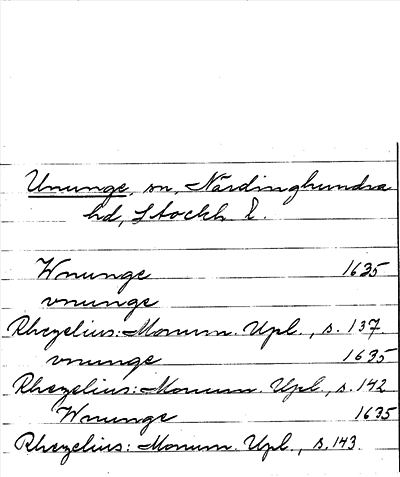 Ununge, sn, Närdinghundra
hd, Stockh. l.
Wnunge 1635
vnunge
Rhezelius: Monum. Upl., s. 137.
vnunge 1635
Rhezelius: Monum. Upl., s. 142
Wnunge 1635
Rhezelius: Monum. Upl., s. 143.